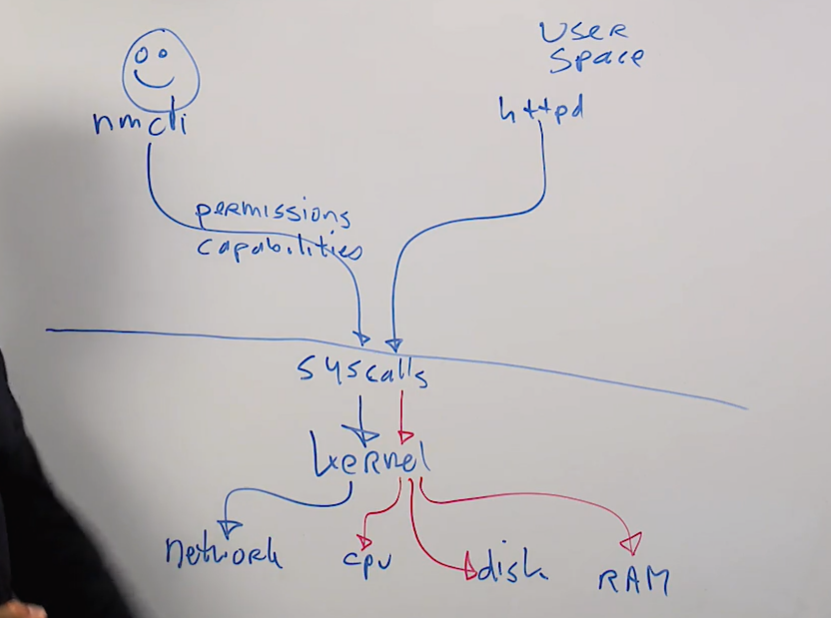 User
Space
nmcli
httpd
permissions
capabilities
syscalls
kernel
network
cpu
disk
RAM